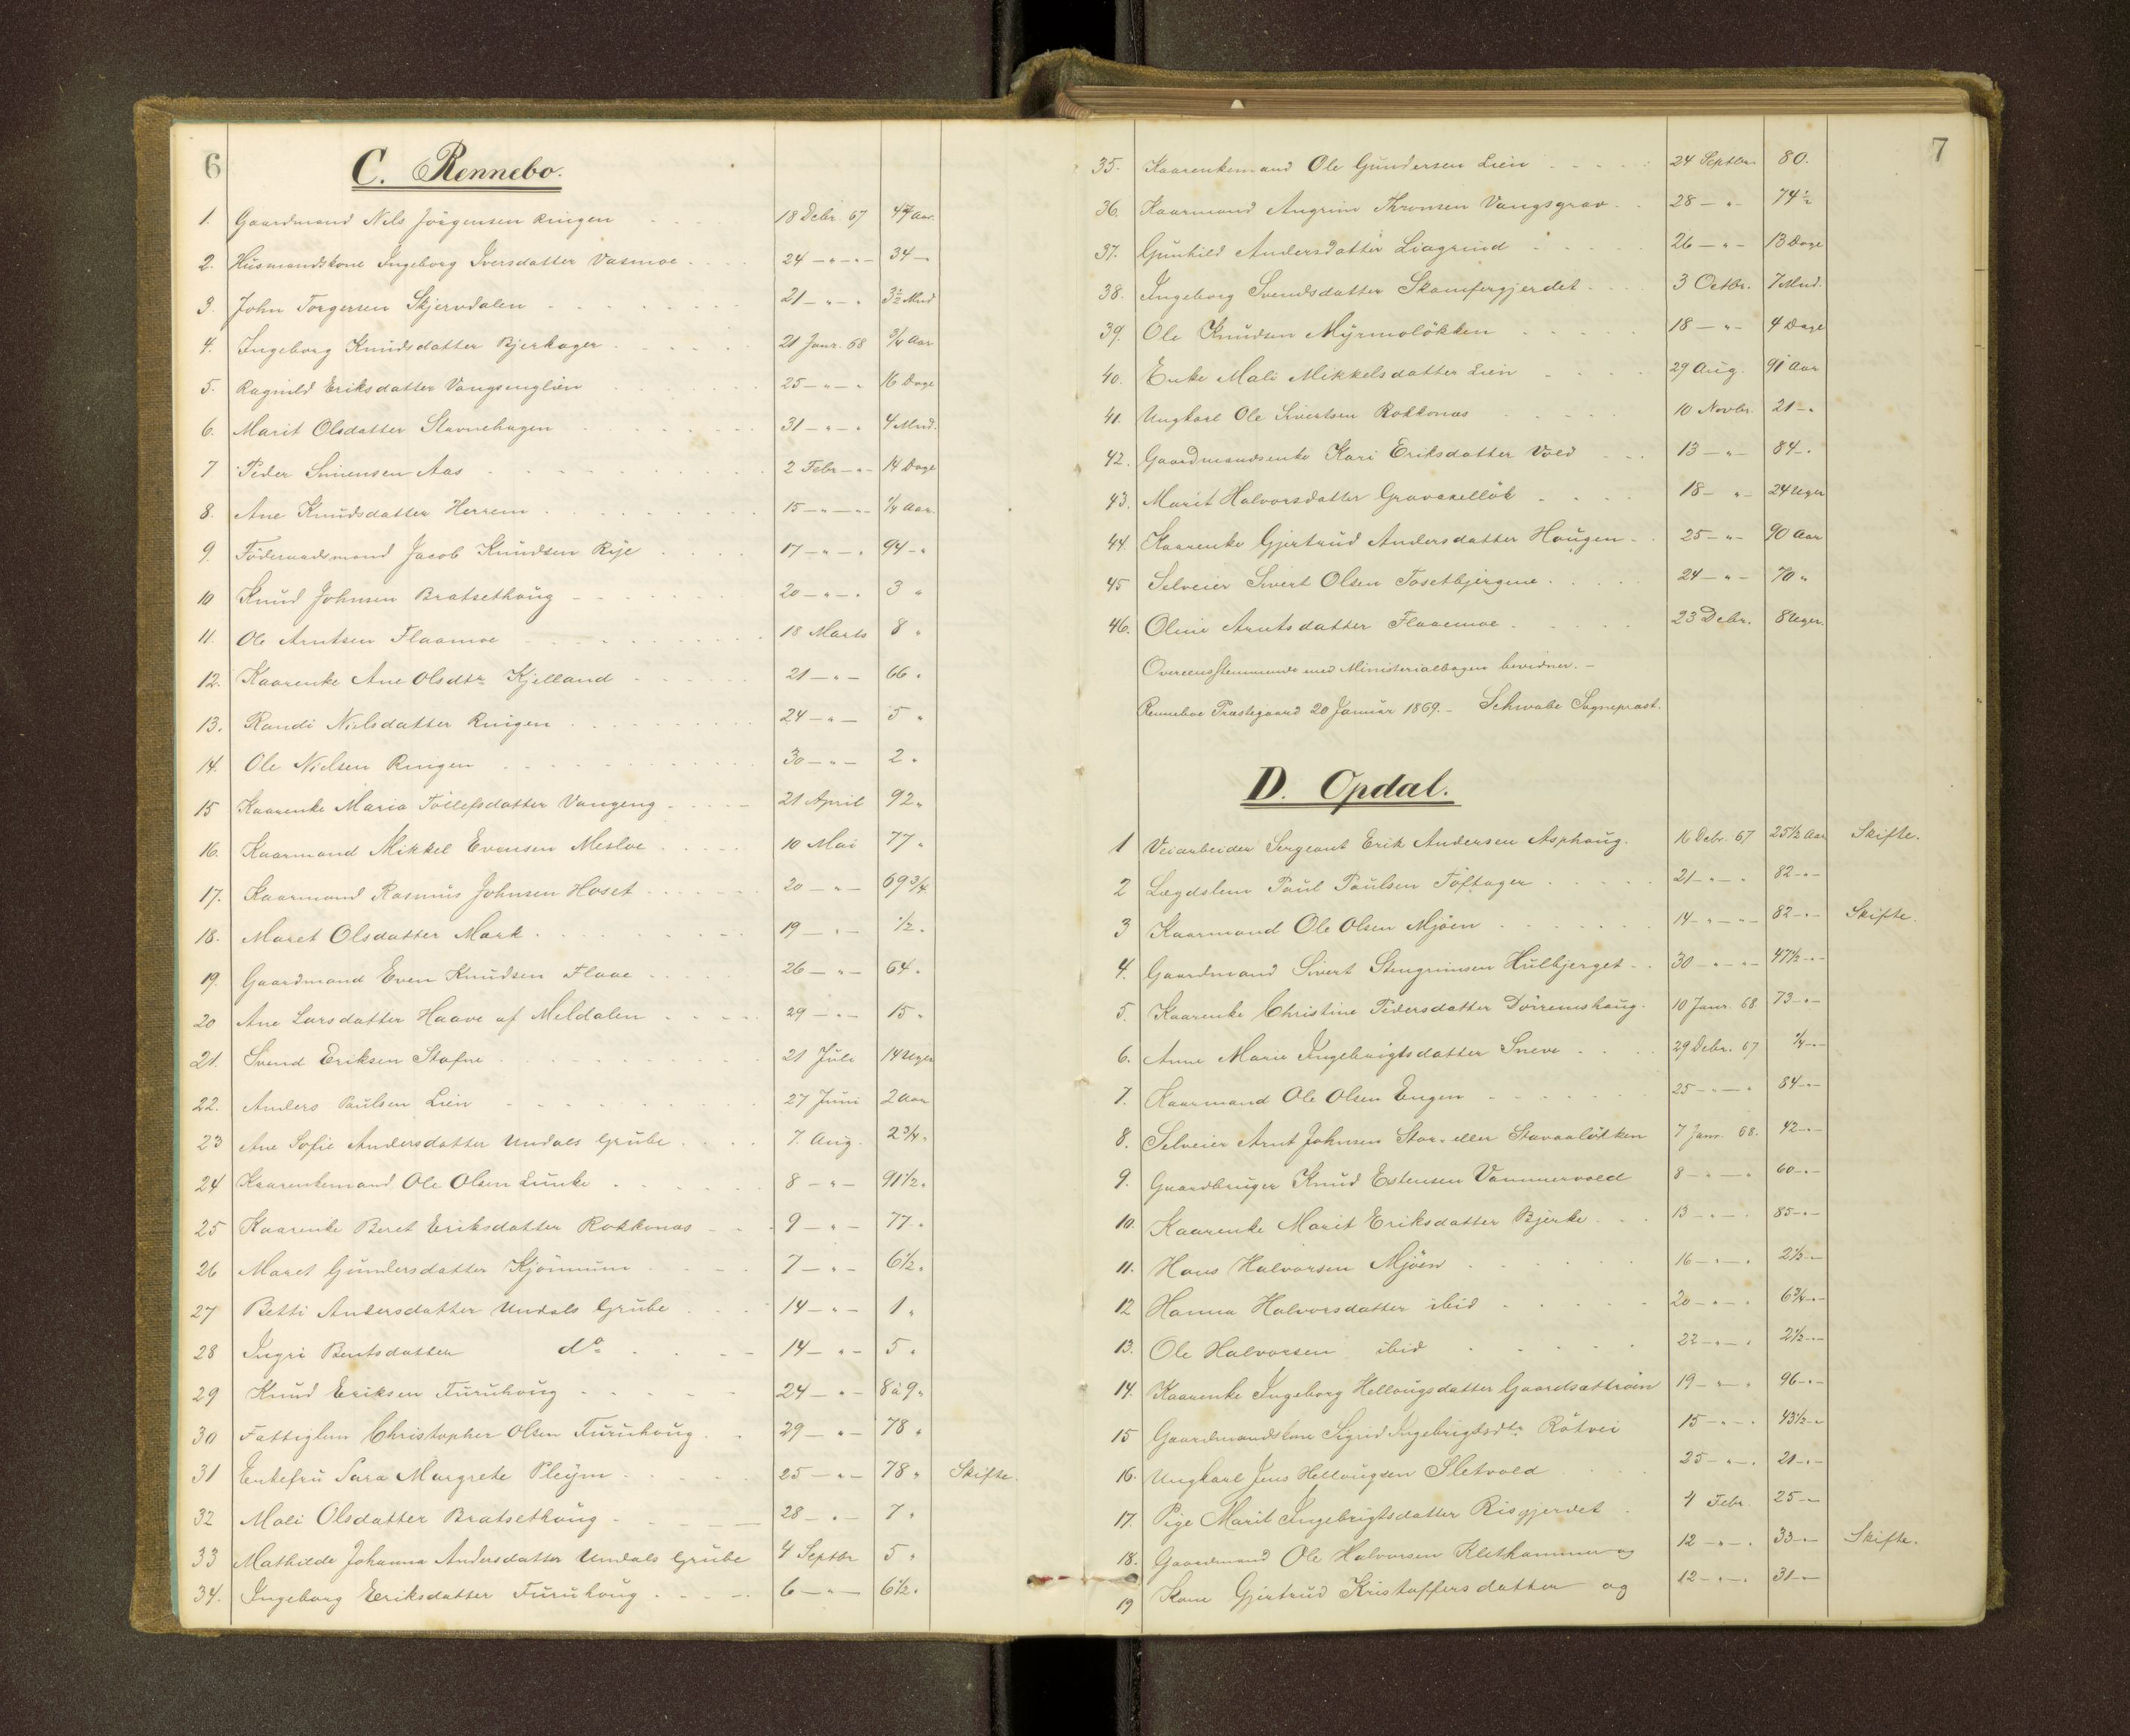 6
C. Rennebo.
1. Gaardmand Nils Jörgensen Ringen 18 Debr. 67 47 Aar.
2. Husmandskone Ingeborg Iversdatter Vasmoe 24 — " — " — 34 —
3. John Torgersen Skjervdalen 21 — " — " 3½ Mnd
4. Ingeborg Knudsdatter Bjerkager 21 Janr. 68 3/4 Aar
5. Ragnild Eriksdatter Vangsenglien 25 — " — " 16 Dage
6. Marit Olsdatter Stavnehagen 31 — " — " 4 Mnd.
7 Peder Simensen Aas 2 Febr — " — 14 Dage
8. Ane Knudsdatter Herrem 15 — " — " — 1/4 Aar.
9. Föderaadsmand Jacob Knudsen Rije 17 — " — " 94 — "
10 Knud Johnsen Bratsethaug 20 — " — " 3 "
11. Ole Arntsen Flaamoe 18 Marts 8 "
12. Kaarenke Ane Olsdtr Kjelland 21 — " — 66 "
13. Randi Nielsdatter Ringen 24 — " — 5 "
14. Ole Nielsen Ringen 30 — " — 2 "
15 Kaarenke Maria Töllefsdatter Vangeng 21 April 92 "
16. Kaarmand Mikkel Evensen Mesloe 10 Mai 77 "
17. Kaarmand Rasmus Johnsen Hoset 20 — " — 69 3/4
18. Maret Olsdatter Mark 19 — " — 1/2 "
19. Gaardmand Even Knudsen Flaae 26 — " — 64 "
20 Ane Larsdatter Haave af Meldalen 29 — " — 15 "
21. Svend Eriksen Stafne 21 Juli 14 Uger
22. Anders Paulsen Lien 27 Juni 2 Aar
23 Ane Sofie Andersdatter Undals Grube 7. Aug. 2 3/4 "
24 Kaarenkemand Ole Olsen Lunke 8 — " — 91 1/2 "
25 Kaarenke Beret Eriksdatter Rokkonas 9 — " — 77 "
26 Maret Gundersdatter Kjönnum 7 — " — 6 1/2 "
27 Betti Andersdatter Undals Grube 14 — " — 1 "
28 Ingri Bentsdatter do 14 — " — 5 "
29 Knud Eriksen Furuhoug 24 — " — 8 à 9 "
30 Fattiglem Christopher Olsen Furuhoug 29 — " — 78 "
31 Enkefru Sara Margrete Pleÿm 25 — " — 78 " Skifte.
32 Mali Olsdatter Bratsethaug 28 — " — 7 "
33 Mathilde Johanna Andersdatter Undals Grube 4 Septbr 5 "
34. Ingeborg Eriksdatter Furuhoug 6 — " — 6 1/2 "
7
35. Kaarenkemand Ole Gundersen Lien 24 Septbr. 80.
36. Kaarmand Angrim Thronsen Vangsgrav 28 — " — 74 ½
37. Gunhild Andersdatter Liagrind 26 — " — 13 Dage
38. Ingeborg Svendsdatter Skamfergjerdet 3 Octbr. 7 Mnd.
39. Ole Knudsen Myrmolökken 18 — " — 4 Dage
40. Enke Mali Mikkelsdatter Lien 29 Aug. 91 Aar
41. Ungkarl Ole Sivertsen Rokkonas 10 Novbr 21 — "
42. Gaardmandsenke Kari Eriksdatter Vold 13 — " — 84 — "
43. Marit Halvorsdatter 18 — " — 24 Uger
44. Kaarenke Gjertrud Andersdatter Haugen 25 — " — 90 Aar
45 Selveier Sivert Olsen Tosetbjergene 24 — " — 70 "
46. Oline Arntsdatter Flaaemoe 23 Debr. 8 Uger.
Overensstemmende med Ministerialbogen bevidner. —
Renneboe Præstegaard 20 Januar 1869. — Schwabe Sognepræst.
D. Opdal.
1 Veiarbeider Sergeant Erik Andersen Asphaug. 16 Debr. 67 25 1/2 Aar Skifte.
2 Lægdslem Paul Paulsen Töftager 21 — " — " 82 — " —
3 Kaarmand Ole Olsen Mjöen 14 — " — " — 82 — " — Skifte.
4. Gaardmand Sivert Stengrimsen Hulbjerget 30 — " — " — 47 1/2 — " —
5. Kaarenke Christine Pedersdatter Dörremshaug. 10 Janr. 68 73 — " —
6. Anne Marie Ingebrigtsdatter Sneve 29 Debr. 67 1/4 — " —
7. Kaarmand Ole Olsen Engen 25 — " — " 84 — " —
8. Selveier Arnt Johnsen Stor- eller Stavaalökken 7 Janr. 68. 42 — " —
9. Gaardbruger Knud Estensen Vammervold 8 — " — " 60 — " —
10. Kaarenke Marit Eriksdatter Bjerke 13 — " — " 85 — " —
11. Hans Halvorsen Mjöen 16 — " — " 2 1/2 — " —
12 Hanna Halvorsdatter ibid 20 — " — " 6 3/4 — " —
13. Ole Halvorsen ibid 22 — " — " 2 1/2 — " —
14. Kaarenke Ingeborg Hellougsdatter Gaardsættröen 19 — " — " 96 — " —
15 Gaardmandskone Sigrid Ingebrigtsdtr. Rötvei 15 — " — " 43 1/2 — "
16. Ungkarl Jens Hellougsen Sletvold 25 — " — " 21 — " —
17. Pige Marit Ingebrigtsdatter Risgjerdet 4 Febr. 25 — " —
18. Gaardmand Ole Halvorsen Klethammer og 12 — " — " 33 — " — Skifte.
19 Kone Gjertrud Kristoffersdatter og 12 — " — " 31 — " —